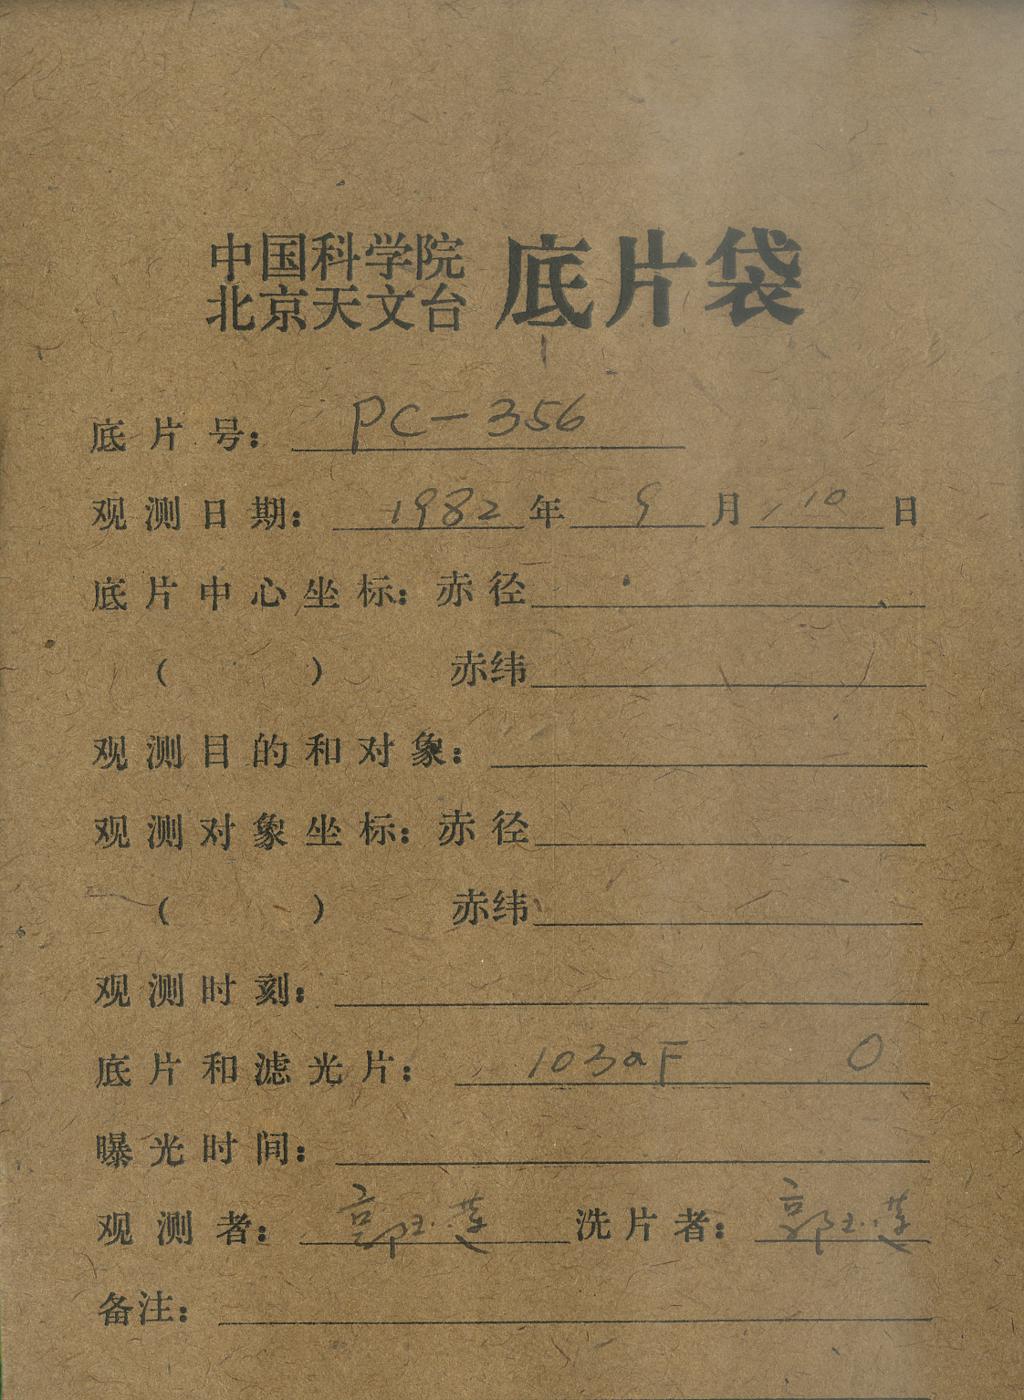 中国科学院
北京天文台 底片袋
底片号: PC-356
观测日期: 1982年 9月 10日
底片中心坐标: 赤径
( ) 赤纬
观测目的和对象:
观测对象坐标: 赤径
( ) 赤纬
观测时刻:
底片和滤光片: 103aF O
曝光时间:
观测者: 郭玉莲 洗片者: 郭玉莲
备注: